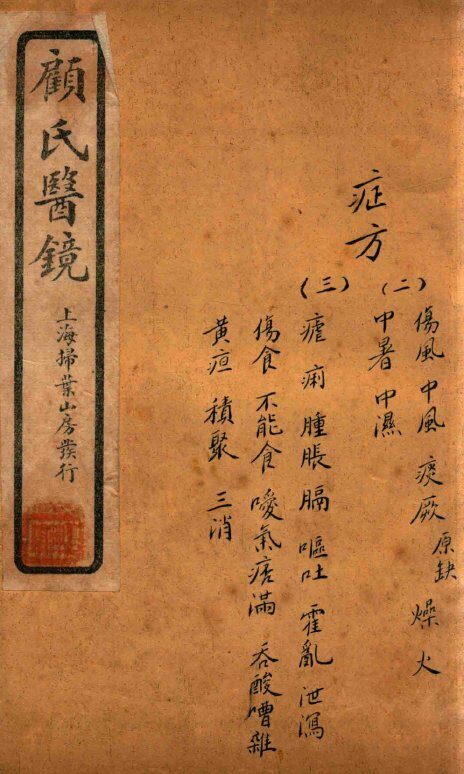 顧氏醫鏡
上海掃葉山房發行
症方
(二)
傷風 中風 痰厥 原缺 燥 火
中暑 中濕
(三)
瘧 痢 腫脹 膈 嘔吐 霍亂 泄瀉
傷食 不能食 噯氣痞滿 吞酸嘈雜
黃疸 積聚 三消